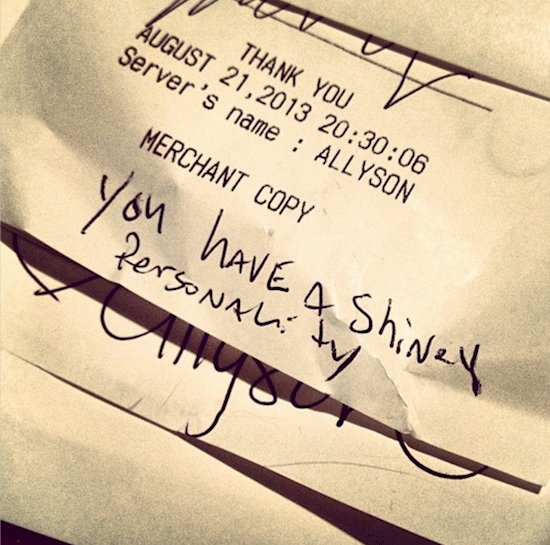 THANK YOU
AUGUST 21,2013 20:30:06
Server's name : ALLYSON
MERCHANT COPY
You HAVE A ShiNeY
PersoNALity
Allyson